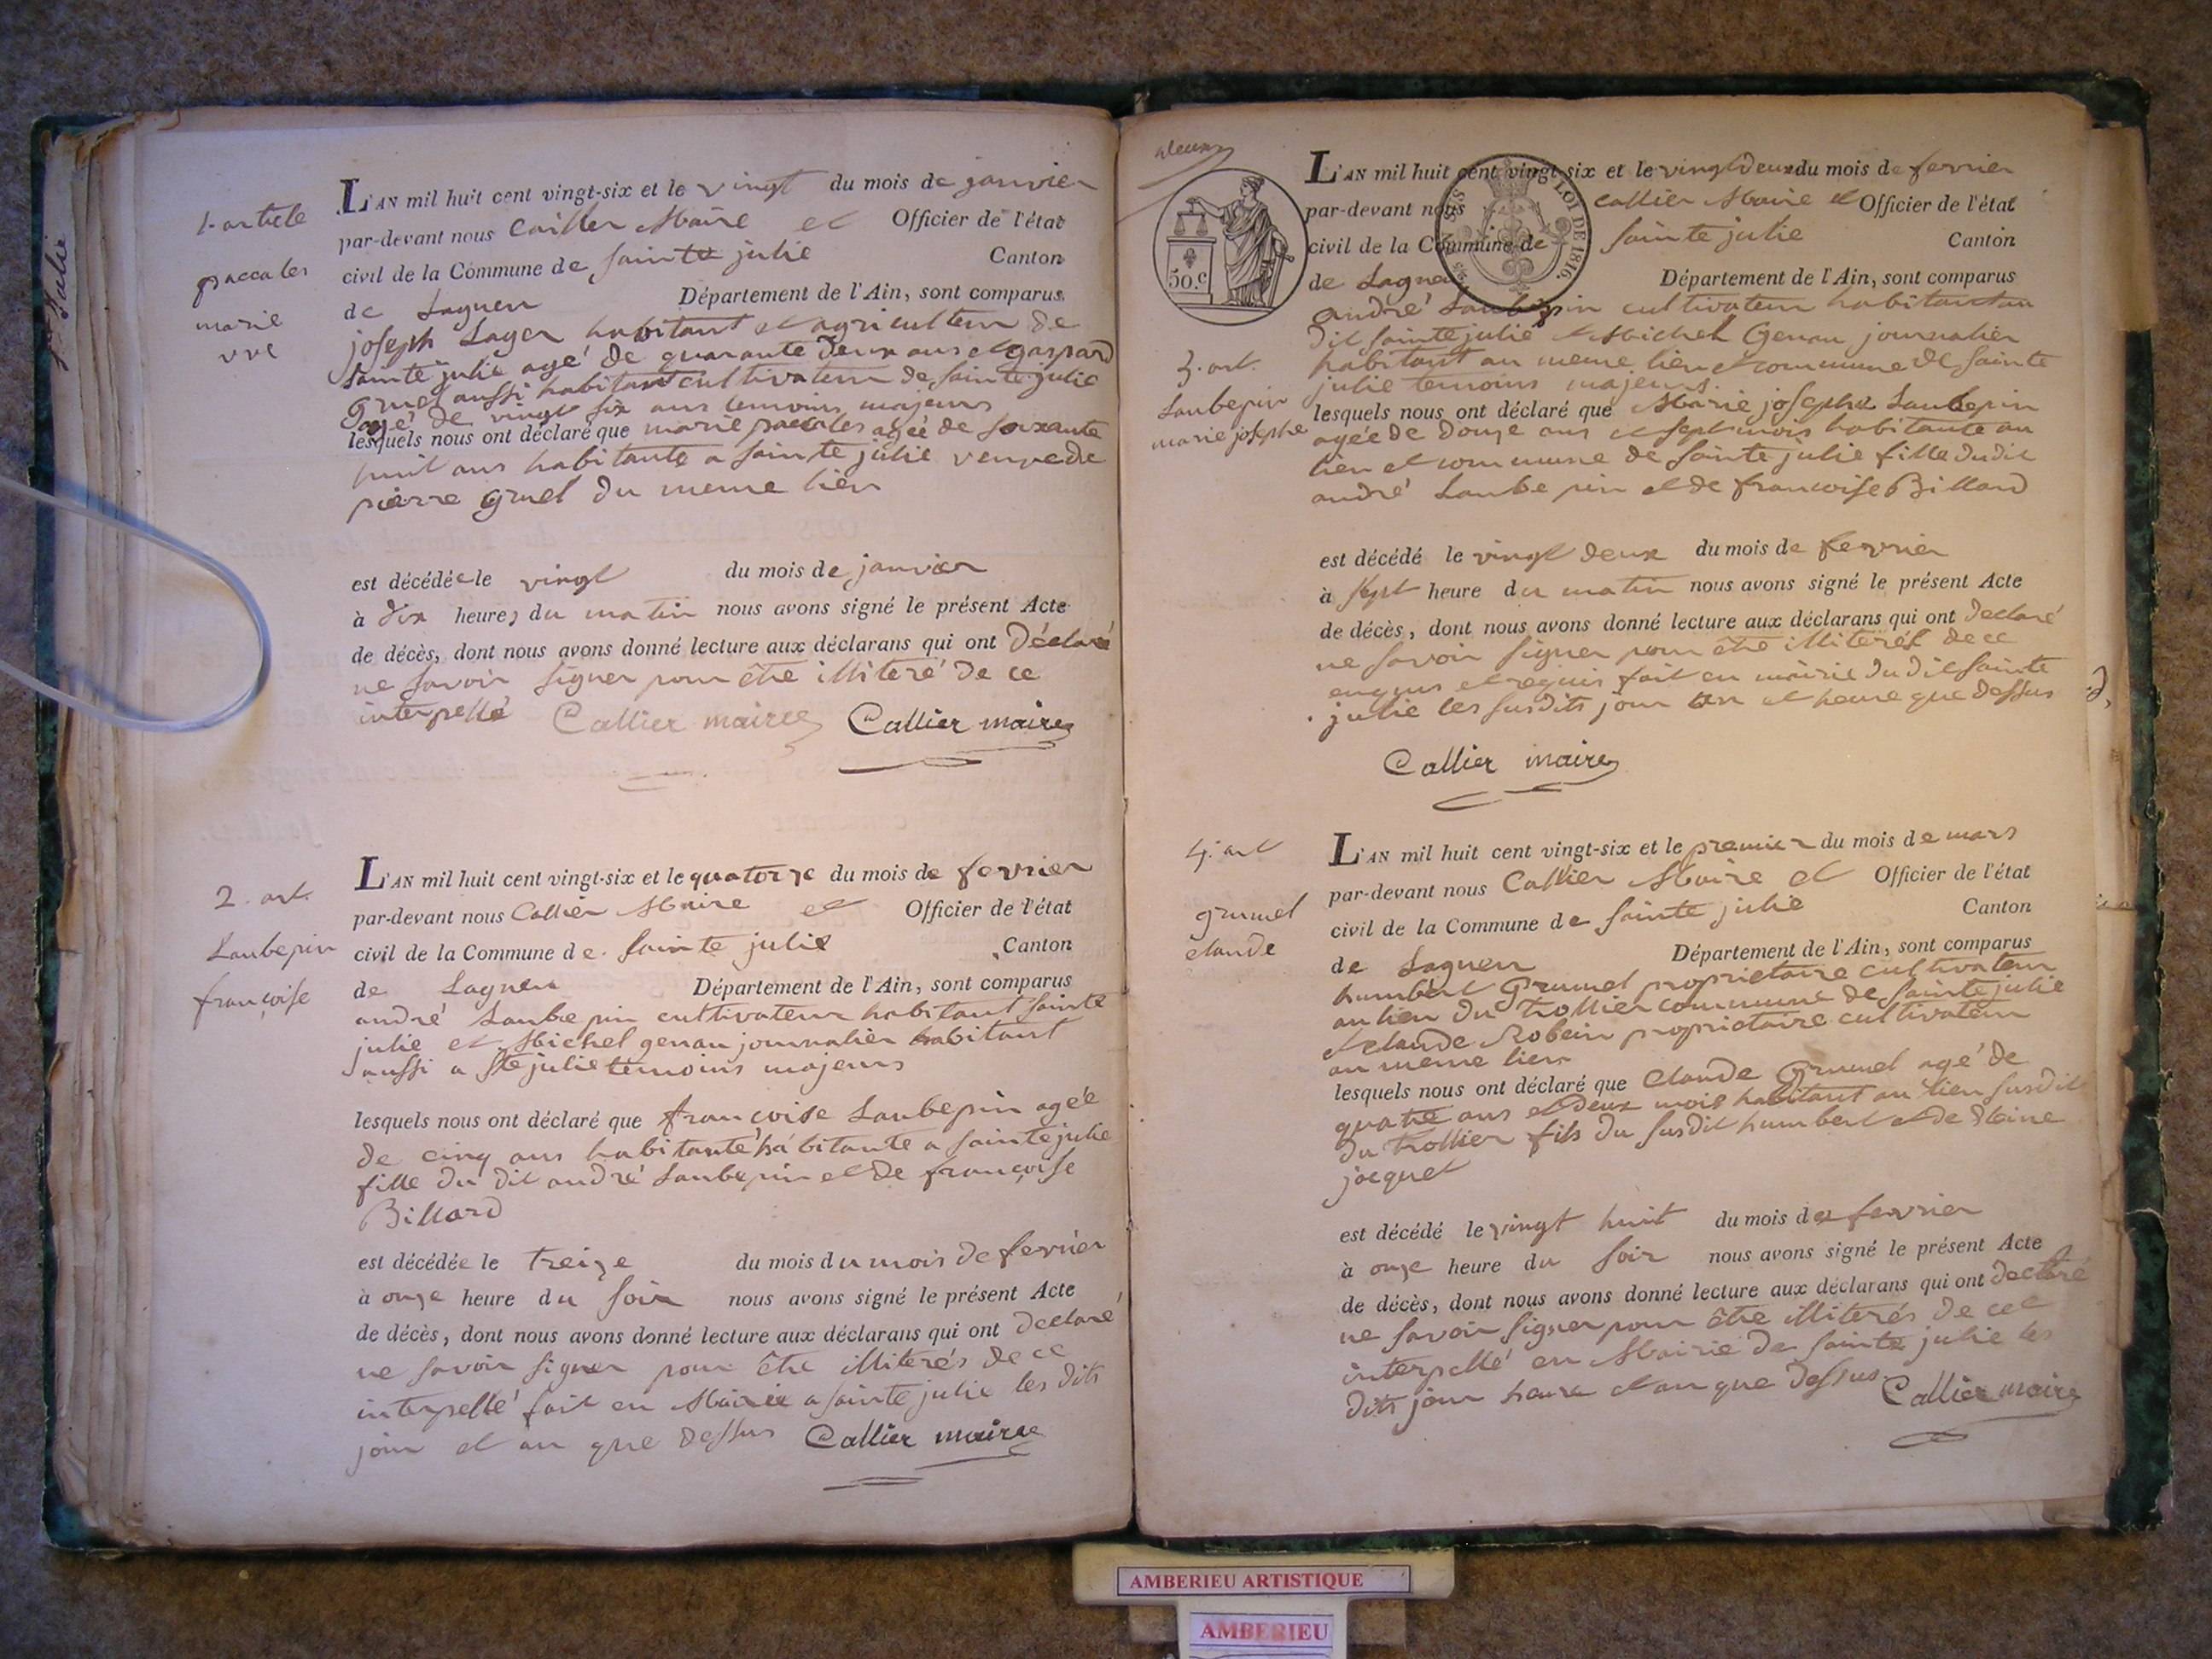 Ste Julie
1. article
paccalet
marie
vve
L'AN mil huit cent vingt-six et le vingt du mois de janvier
par-devant nous Callier Maire et Officier de l'état
civil de la Commune de sainte julie Canton
de Lagneu Département de l'Ain, sont comparus
joseph Lager habitant et agriculteur de
sainte julie agé de quarante deux ans et gaspard
gruel aussi habitant cultivateur de sainte julie
agé de vingt six ans temoins majeurs
lesquels nous ont déclaré que marie paccalet agée de soixante
huit ans habitante a sainte julie veuve de
pierre gruel du meme lieu
est décédée le vingt du mois de janvier
à dix heures du matin nous avons signé le présent Acte
de décès, dont nous avons donné lecture aux déclarans qui ont déclaré
ne savoir signer pour être illiteré de ce
interpellé Callier maire Callier maire
2. art.
Laubepin
françoise
L'AN mil huit cent vingt-six et le quatorze du mois de fevrier
par-devant nous Callier Maire et Officier de l'état
civil de la Commune de sainte julie Canton
de Lagneu Département de l'Ain, sont comparus
andré Laubepin cultivateur habitant sainte
julie et Michel genau journalier habitant
aussi a Ste julie temoins majeurs
lesquels nous ont déclaré que françoise Laubepin agée
de cinq ans habitante habitante a sainte julie
fille du dit andré Laubepin et de françoise
Billard
est décédée le treize du mois du mois de fevrier
à onze heure du soir nous avons signé le présent Acte
de décès, dont nous avons donné lecture aux déclarans qui ont declaré
ne savoir signer pour être illiterés de ce
interpellé fait en Mairie a sainte julie les dits
jour et an que dessus Callier maire
50.c
LOI DE 1816.
3. art.
Laubepin
marie josephe
L'AN mil huit cent vingt-six et le vingt deux du mois de fevrier
par-devant nous callier Maire et Officier de l'état
civil de la Commune de sainte julie Canton
de Lagneu Département de l'Ain, sont comparus
andré Laubepin cultivateur habitant au
dit sainte julie et Michel Genau journalier
habitant au meme lieu et commune de sainte
julie temoins majeurs.
lesquels nous ont déclaré que Marie josephe Laubepin
agée de douze ans et sept mois habitante au
lieu et commune de sainte julie fille du dit
andré Laubepin et de francoise Billard
est décédé le vingt deux du mois de fevrier
à sept heure du matin nous avons signé le présent Acte
de décès, dont nous avons donné lecture aux déclarans qui ont declaré
ne savoir signer pour être illiterés de ce
enquis et requis fait en mairie du dit sainte
julie les susdits jour an et heure que dessus
Callier maire
4. art
grumel
claude
L'AN mil huit cent vingt-six et le premier du mois de mars
par-devant nous Callier Maire et Officier de l'état
civil de la Commune de sainte julie Canton
de Lagneu Département de l'Ain, sont comparus
humbert Grumel proprietaire cultivateur
au lieu du trollier commune de sainte julie
et claude Robein proprietaire cultivateur
au meme lieu
lesquels nous ont déclaré que Claude Grumel agé de
quatre ans et deux mois habitant au lieu susdit
du trollier fils du susdit humbert et de
jacquet
est décédé le vingt huit du mois de fevrier
à onze heure du soir nous avons signé le présent Acte
de décès, dont nous avons donné lecture aux déclarans qui ont declaré
ne savoir signer pour être illiterés de cet
interpellé en Mairie de sainte julie les
dits jour heure et an que dessus. Callier maire
AMBERIEU ARTISTIQUE
AMBERIEU